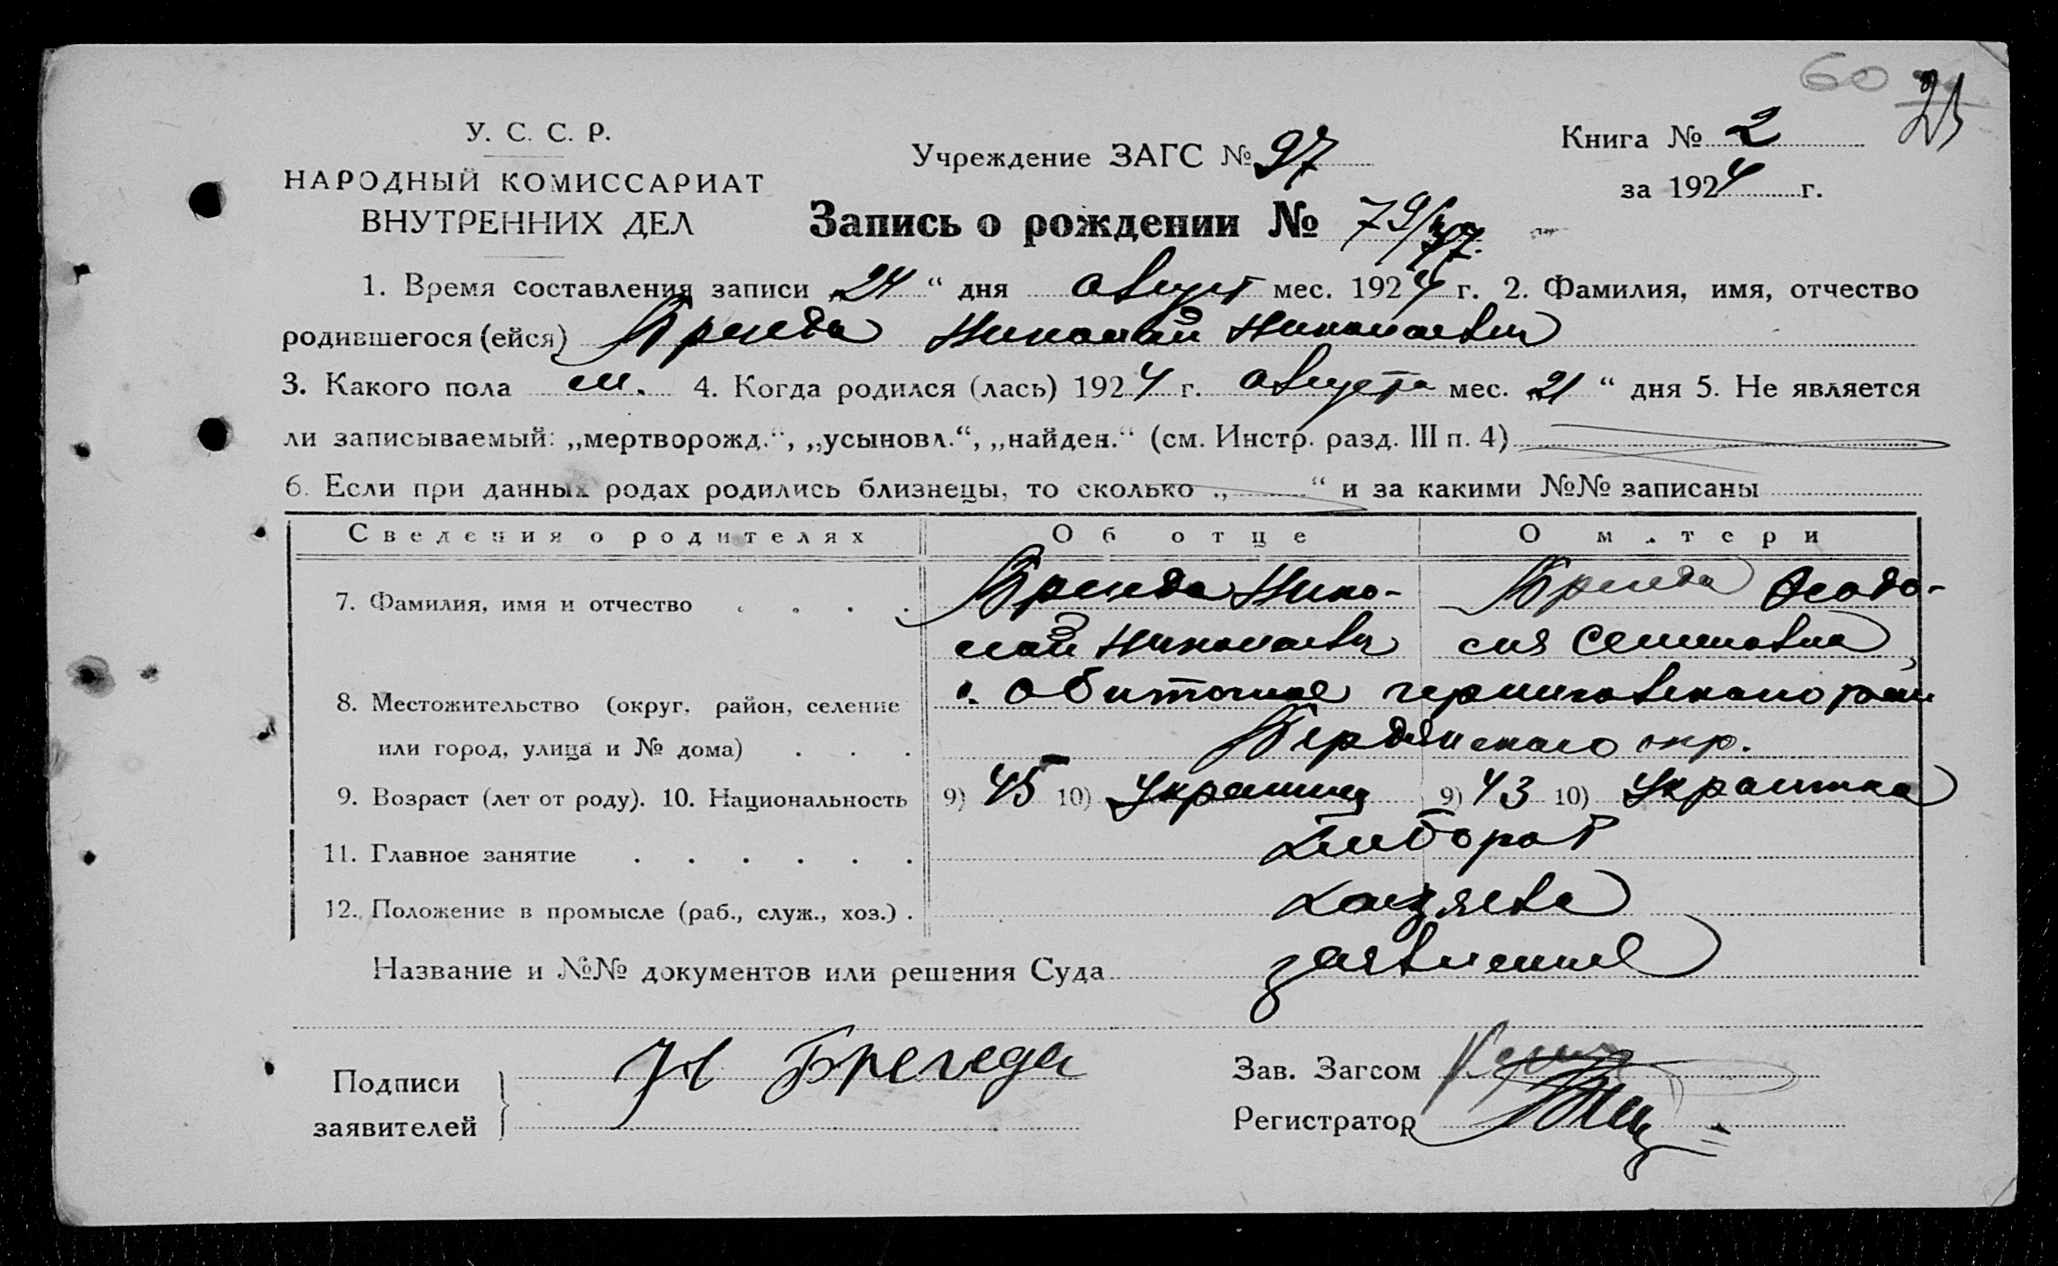 60 25
У. С. С. Р.
НАРОДНЫЙ КОМИССАРИАТ
ВНУТРЕННИХ ДЕЛ
Учреждение ЗАГС № 97
Книга № 2
за 1924 г.
Запись о рождении № 79/97
1. Время составления записи „24“ дня август мес. 1924 г. 2. Фамилия, имя, отчество
родившегося (ейся) Николай Николаевич
3. Какого пола м. 4. Когда родился (лась) 1924 г. августа мес. „21“ дня 5. Не является
ли записываемый: „мертворожд.“, „усыновл.“, „найден.“ (см. Инстр. разд. III п. 4)
6. Если при данных родах родились близнецы, то сколько „ “ и за какими №№ записаны
Сведения о родителях Об отце О матери
7. Фамилия, имя и отчество Нико- Феодо-
лай Николаевич сия Семеновна
8. Местожительство (округ, район, селение с. Обиточное черниговского рай
или город, улица и № дома) Бердянского окр.
9. Возраст (лет от роду). 10. Национальность 9) 45 10) Украинец 9) 43 10) Украинка
11. Главное занятие Хлебороб
12. Положение в промысле (раб., служ., хоз.) хозяева
Название и №№ документов или решения Суда заявление
Подписи
заявителей
Н Брегеда
Зав. Загсом
Регистратор